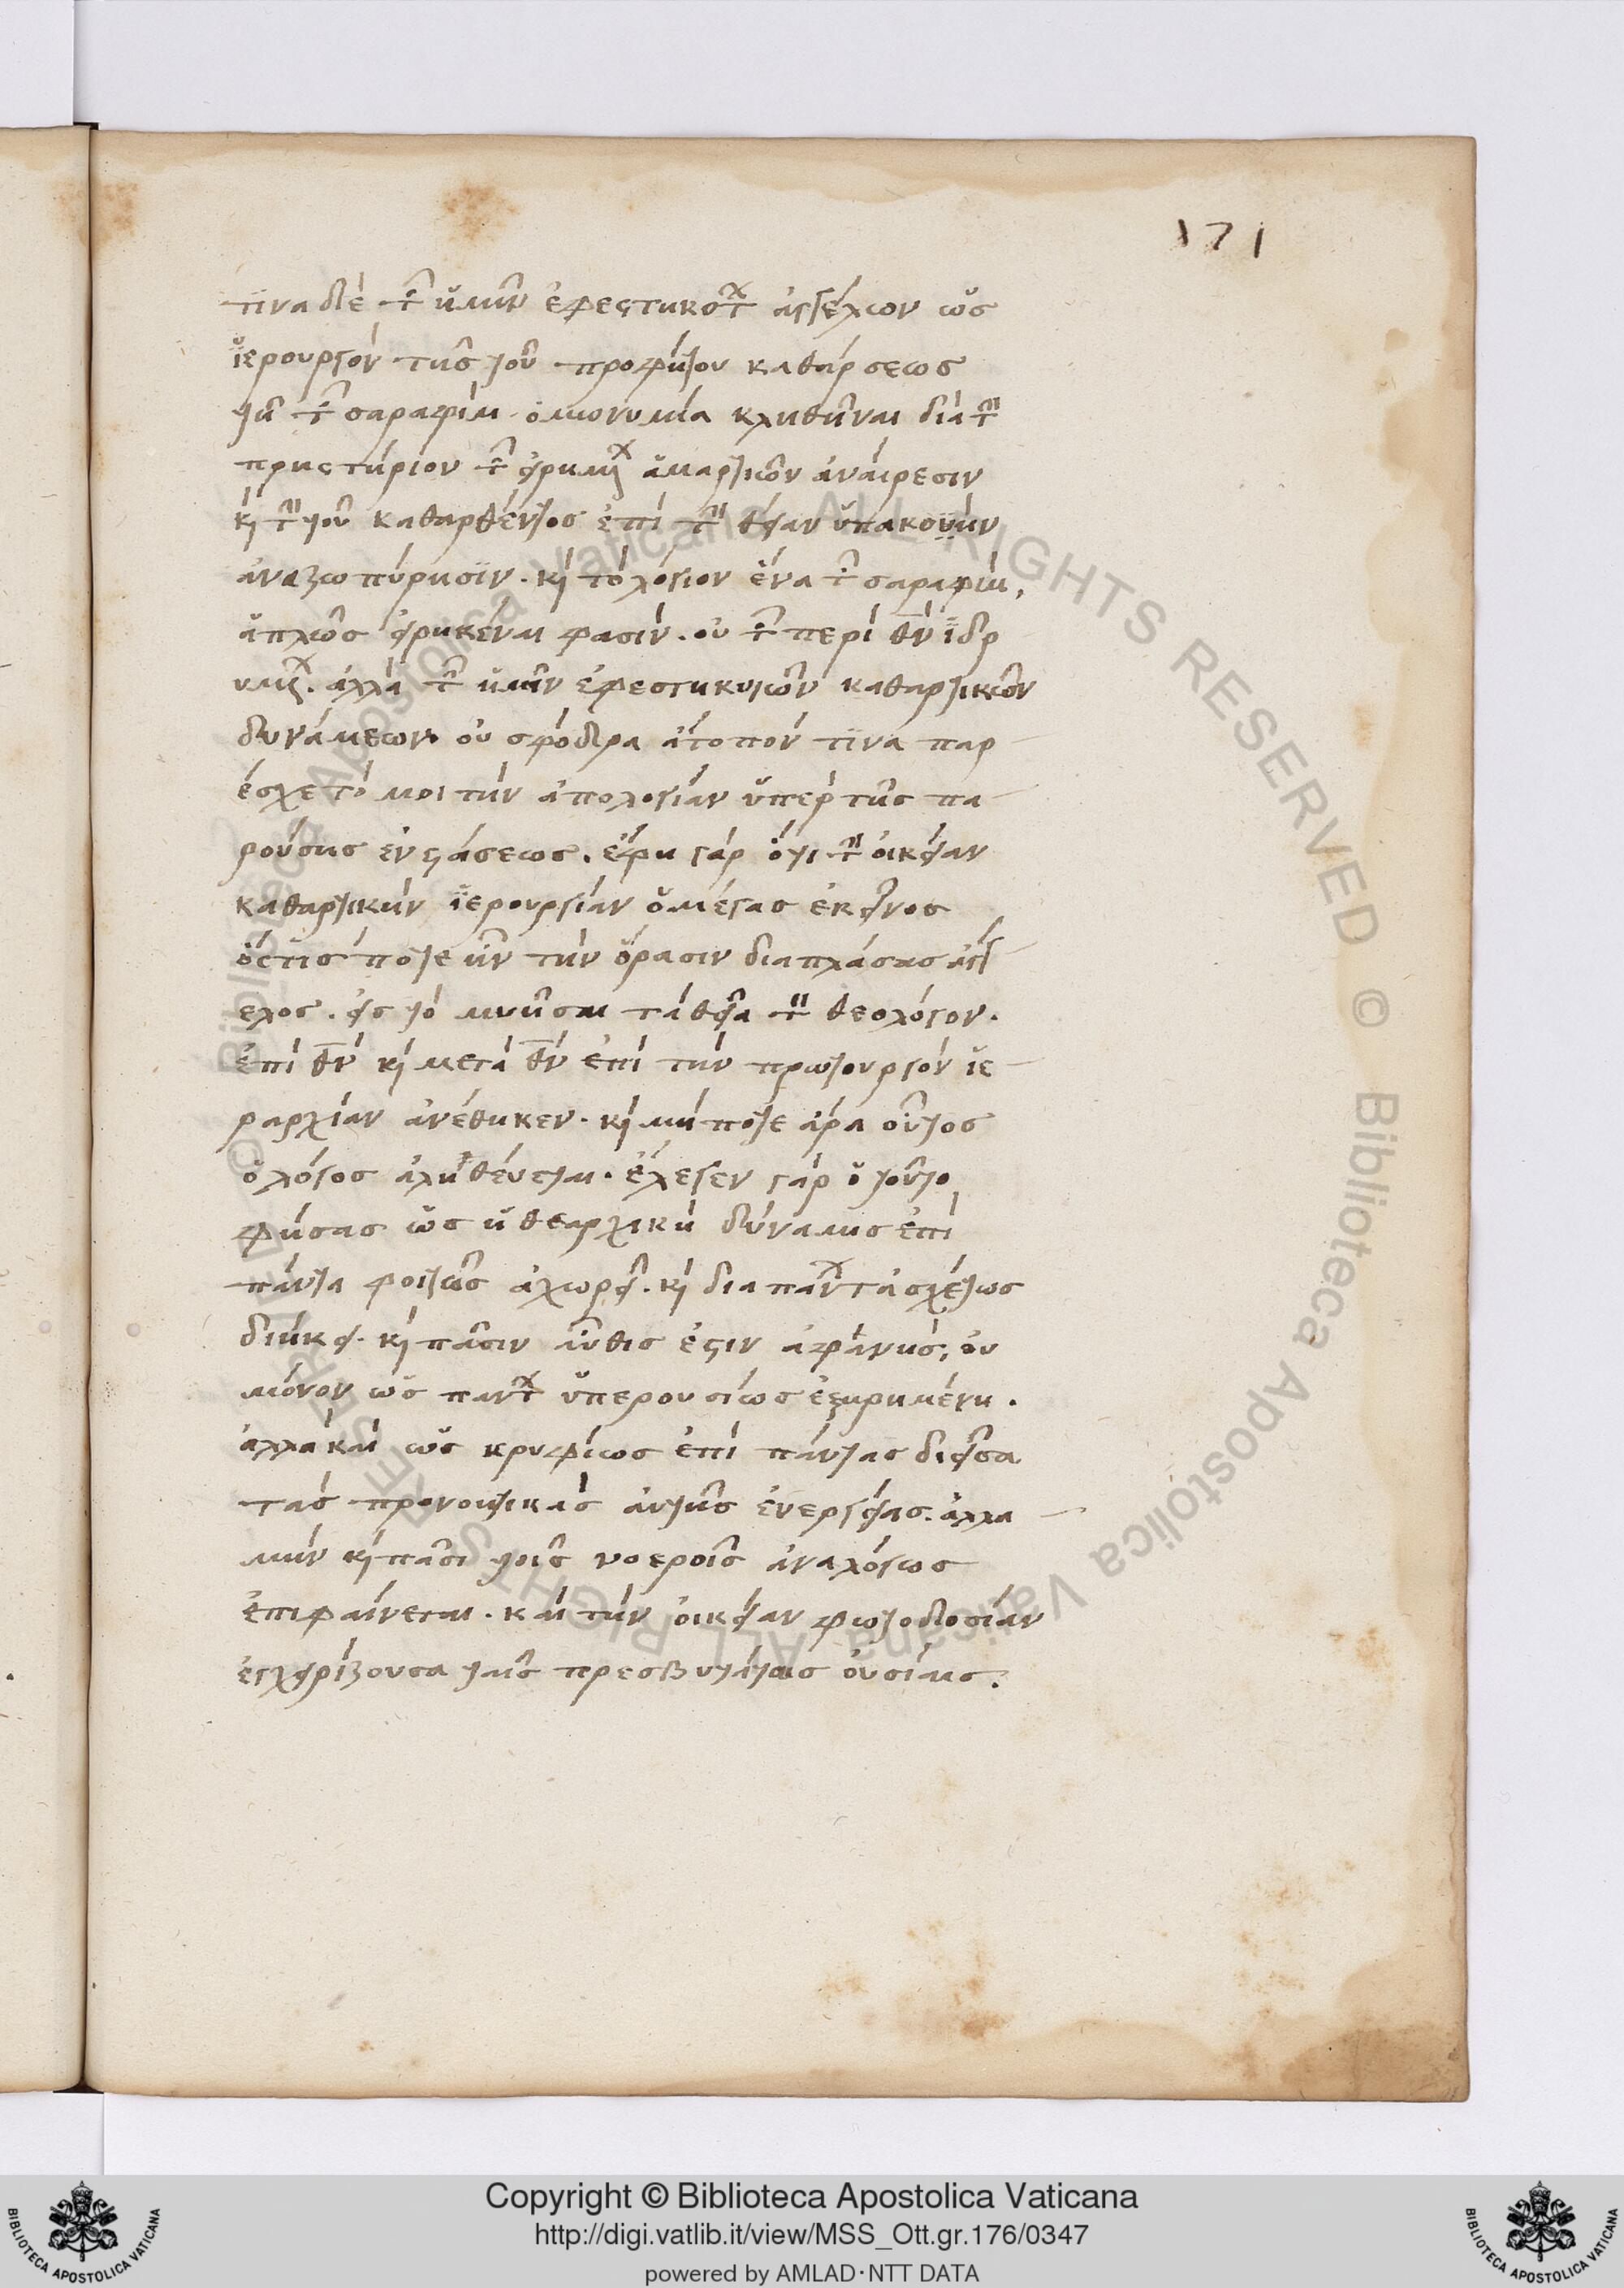 171
τινα δὲ τῶν ἡμῖν ἐφεστηκότων ἀγγέλων ὡς
ἱερουργὸν τῆς τοῦ προφήτου καθάρσεως
τῆ τῶν σαραφὶμ ὁμωνυμία κληθῆναι διὰ τὴν
πρηστήριον τῶν εἰρημένων ἁμαρτιῶν ἀναίρεσιν
καὶ τὴν τοῦ καθαρθέντος ἐπὶ τὴν θείαν ὑπακοὴν
ἀναζωπύρησιν. καὶ τὸ λόγιον ἕνα τῶν σαραφὶμ,
ἁπλῶς εἰρηκέναι φασίν. οὐ τῶν περὶ θν ἱδρ
υμένων. ἀλλὰ τῶν ἡμῖν ἐφεστηκυιῶν καθαρτικῶν
δυνάμεων. οὐ σφόδρα ἄτοπόν τινα παρ
έσχετό μοι τὴν ἀπολογίαν ὑπὲρ τῆς πα
ρούσης ἐνστάσεως. ἔφη γὰρ ὅτι τὴν οἰκείαν
καθαρτικὴν ἱερουργίαν ὁ μέγας ἐκεῖνος
ὅστίς ποτε ἦν τὴν ὅρασιν διαπλάσας ἄγγ
ελος. εἰς τὸ μυῆσαι τὰ θεῖα τὴν θεολόγον.
ἐπὶ θν καὶ μετὰ θν ἐπὶ τὴν πρωτουργὸν ἱε
ραρχίαν ἀνέθηκεν. καὶ μήποτε ἄρα οὗτος
ὁ λόγος ἀληθεύεται. ἔλεγεν γὰρ ὁ τοῦτο
φήσας ὡς ἡ θεαρχικὴ δύναμις ἐπὶ
πάντα φοιτῶς ἀχωρεῖ. καὶ δια πάντων ἀσχέτως
διήκει. καὶ πᾶσιν αὖθις ἐστιν ἀφανὴς, οὐ
μόνον ὡς πάντων ὑπερουσίως ἐξηρημένη.
ἀλλὰ καὶ ὡς κρυφίως ἐπὶ πάντας διεῖσα
τὰς προνοητικὰς αὐτῆς ἐνεργείας. ἀλλὰ
μὴν καὶ πᾶσι τοῖς νοεροῖς ἀναλόγως
ἐπιφαίνεται. καὶ τὴν οἰκείαν φωτοδοσίαν
ἐγχειρίζουσα ταῖς πρεσβυτάταις οὐσίαις.
© Biblioteca Apostolica Vaticana ALL RIGHTS RESERVED © Biblioteca Apostolica Vaticana ALL RIGHTS RESERVED
Copyright © Biblioteca Apostolica Vaticana
http://digi.vatlib.it/view/MSS_Ott.gr.176/0347
powered by AMLAD·NTT DATA
BIBLIOTECA APOSTOLICA VATICANA
BIBLIOTECA APOSTOLICA VATICANA